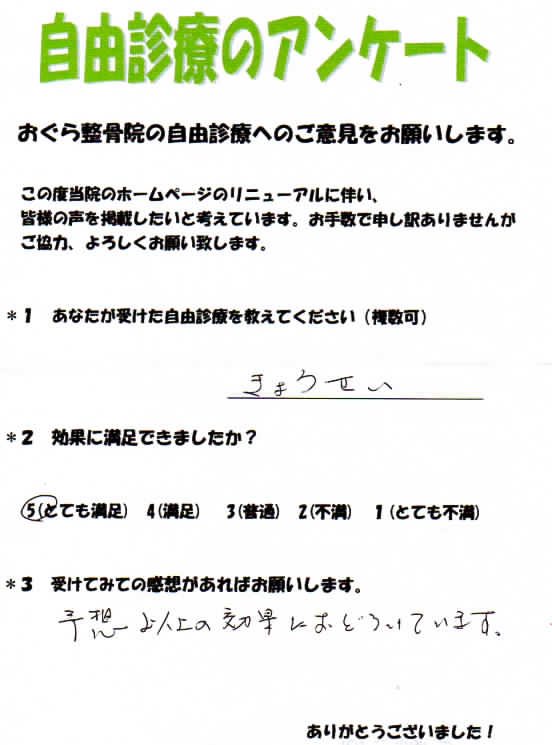 自由診療のアンケート
おぐら整骨院の自由診療へのご意見をお願いします。
この度当院のホームページのリニューアルに伴い、
皆様の声を掲載したいと考えています。お手数で申し訳ありませんが
ご協力、よろしくお願い致します。
*1 あなたが受けた自由診療を教えてください(複数可)
きょうせい
*2 効果に満足できましたか?
5(とても満足) 4(満足) 3(普通) 2(不満) 1(とても不満)
*3 受けてみての感想があればお願いします。
予想以上の効果におどろいています。
ありがとうございました!